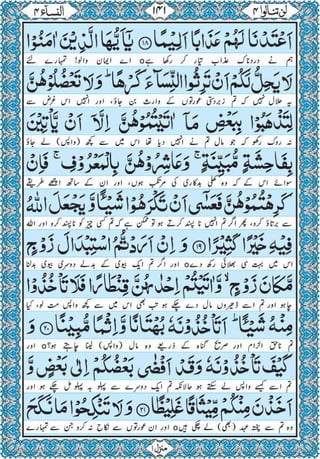 النسآء ۴
۱۴۱
لن تنالوا ۴
اَعْتَدْنَا لَهُمْ عَذَابًا اَلِيْمًا ۝۱۸ يٰۤاَيُّهَا الَّذِيْنَ اٰمَنُوْا
ہم نے دردناک عذاب تیار کر رکھا ہے ۝ اے ایمان والو! تمہارے لئے
لَا يَحِلُّ لَكُمْ اَنْ تَرِثُوا النِّسَآءَ كَرْهًا ؕ وَلَا تَعْضُلُوْهُنَّ
یہ حلال نہیں کہ تم زبردستی عورتوں کے وارث بن جاؤ، اور انہیں اس غرض سے
لِتَذْهَبُوْا بِبَعْضِ مَاۤ اٰتَيْتُمُوْهُنَّ اِلَّاۤ اَنْ يَّاْتِيْنَ
نہ روک رکھو کہ جو مال تم نے انہیں دیا تھا اس میں سے کچھ (واپس) لے جاؤ
بِفَاحِشَةٍ مُّبَيِّنَةٍ ۚ وَعَاشِرُوْهُنَّ بِالْمَعْرُوْفِ ۚ فَاِنْ
سوائے اس کے کہ وہ کھلی بدکاری کی مرتکب ہوں، اور ان کے ساتھ اچھے طریقے
كَرِهْتُمُوْهُنَّ فَعَسٰۤى اَنْ تَكْرَهُوْا شَيْـًٔا وَّيَجْعَلَ اللّٰهُ
سے برتاؤ کرو، پھر اگر تم انہیں نا پسند کرتے ہو تو ممکن ہے کہ تم کسی چیز کو ناپسند کرو اور اللہ
فِيْهِ خَيْرًا كَثِيْرًا ۝۱۹ وَاِنْ اَرَدْتُّمُ اسْتِبْدَالَ زَوْجٍ
اس میں بہت سی بھلائی رکھ دے ۝ اور اگر تم ایک بیوی کے بدلے دوسری بیوی بدلنا
مَّكَانَ زَوْجٍ ۙ وَّاٰتَيْتُمْ اِحْدٰىهُنَّ قِنْطَارًا فَلَا تَاْخُذُوْا
چاہو اور تم اسے ڈھیروں مال دے چکے ہو تب بھی اس میں سے کچھ واپس مت لو، کیا
مِنْهُ شَيْـًٔا ؕ اَتَاْخُذُوْنَهٗ بُهْتَانًا وَّاِثْمًا مُّبِيْنًا ۝۲۰ وَ
تم ناحق الزام اور صریح گناہ کے ذریعے وہ مال (واپس) لینا چاہتے ہو؟ ۝ اور
كَيْفَ تَاْخُذُوْنَهٗ وَقَدْ اَفْضٰى بَعْضُكُمْ اِلٰى بَعْضٍ وَّ
تم اسے کیسے واپس لے سکتے ہو حالانکہ تم ایک دوسرے سے پہلو بہ پہلو مل چکے ہو اور
اَخَذْنَ مِنْكُمْ مِّيْثَاقًا غَلِيْظًا ۝۲۱ وَلَا تَنْكِحُوْا مَا نَكَحَ
وہ تم سے پختہ عہد (بھی) لے چکی ہیں ۝ اور ان عورتوں سے نکاح نہ کرو جن سے تمہارے
منزل